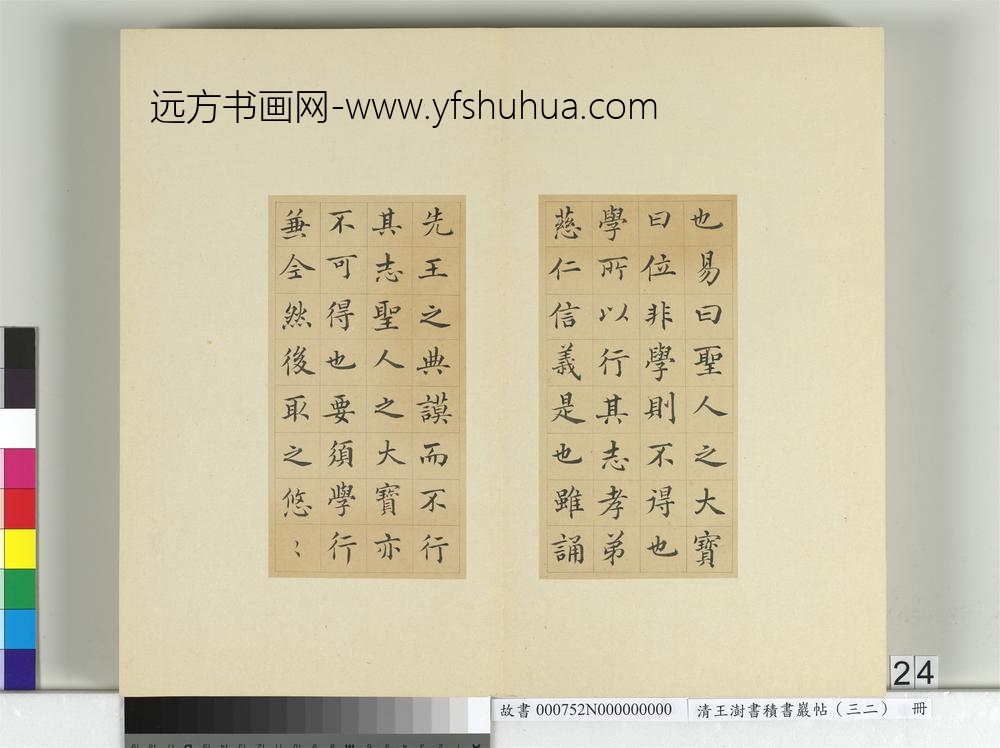 远方书画网-www.yfshuhua.com
也易曰聖人之大寶
曰位非學則不得也
學所以行其志孝弟
慈仁信義是也雖誦
先王之典謨而不行
其志聖人之大寶亦
不可得也要須學行
兼全然後取之悠〻
24
故書 000752N000000000
清王澍書積書巖帖（三二） 冊